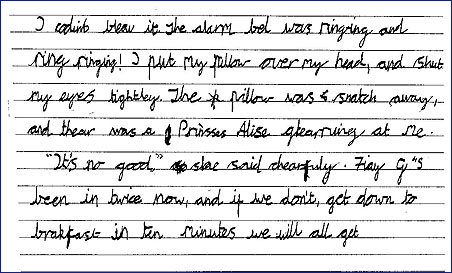 I codint bleav it. The alarm bel was ringring and
ring ringing! I put my pillow over my head, and shut
my eyes tightley. The pillow was snatch away,
and thear was a Prinsses Alise glearring at me.
"It's no good," she said chearfuly. Fiay G"s
been in twice now, and if we don't, get down to
brakfast in ten minutes we will all get